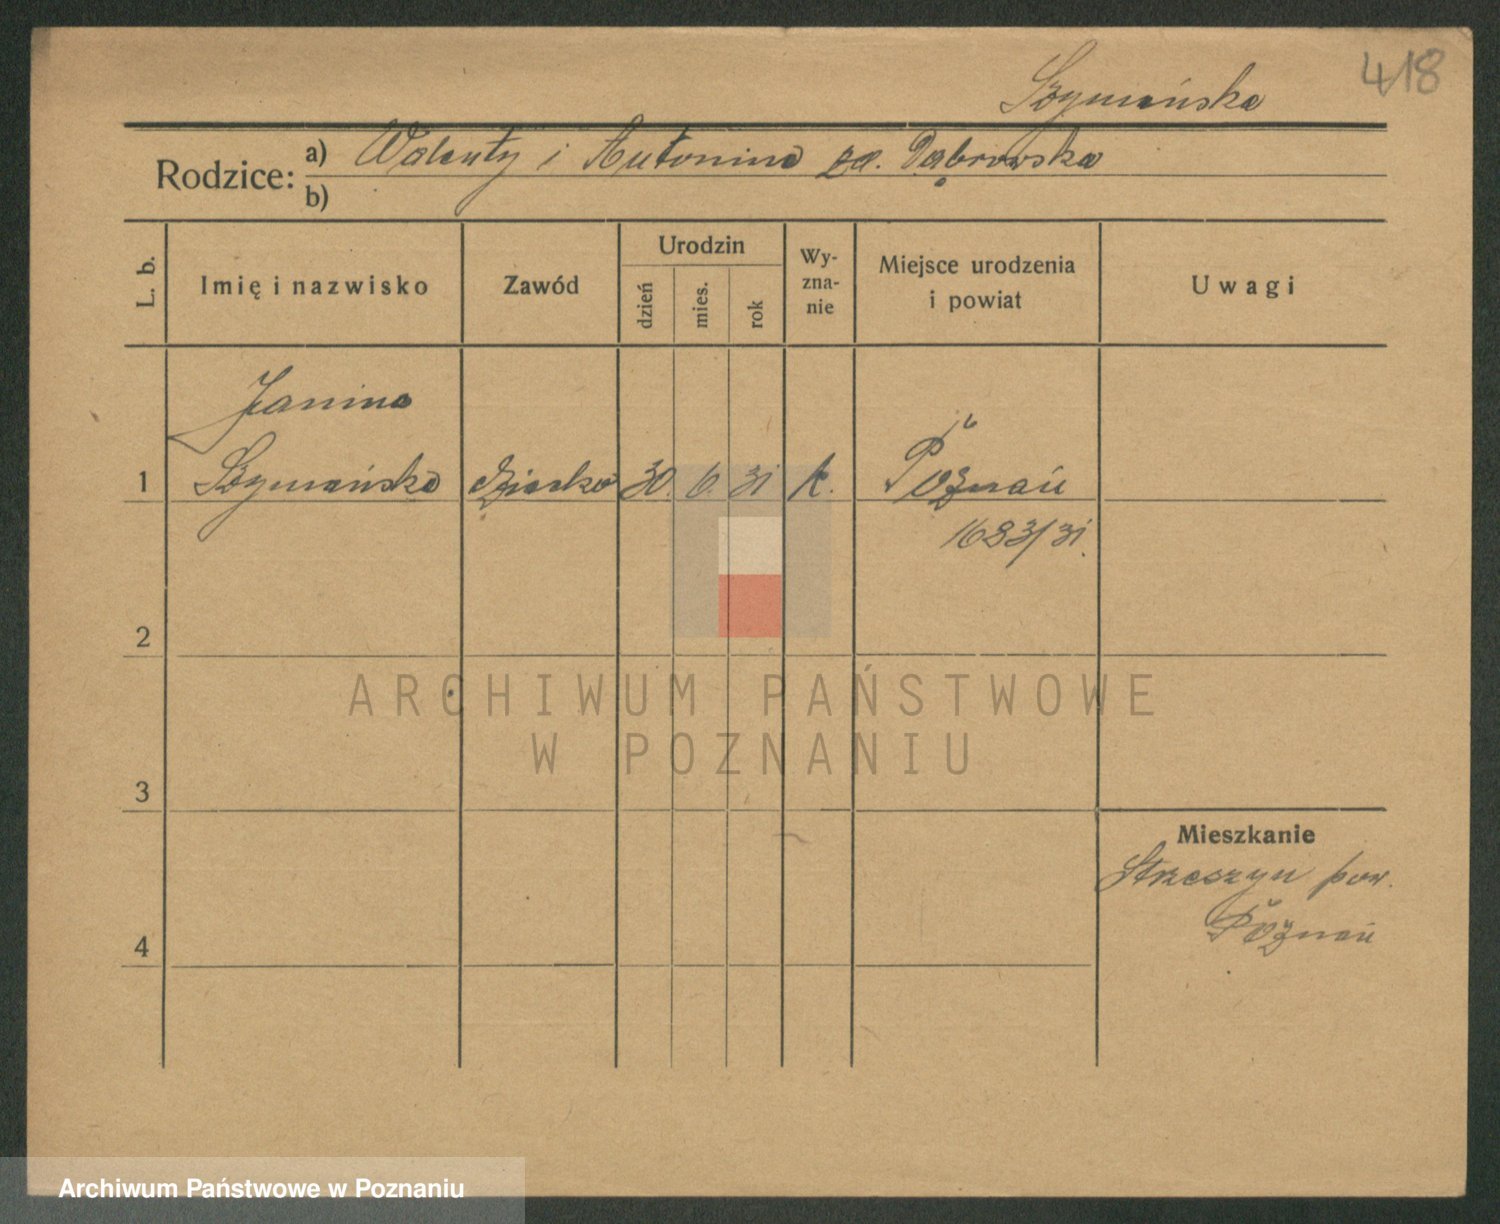 418
Szymańska
Rodzice: a) Walenty i Antonina zd. Dąbrowska
b)
L. b.
Imię i nazwisko
Zawód
Urodzin
dzień
mies.
rok
Wy-
zna-
nie
Miejsce urodzenia
i powiat
Uwagi
Janina
1 Szymańska dziecko 30. 6. 31 k. Poznań
1683/31.
2
3
4
Mieszkanie
Strzeszyn pow.
Poznań
ARCHIWUM PAŃSTWOWE
W POZNANIU
Archiwum Państwowe w Poznaniu